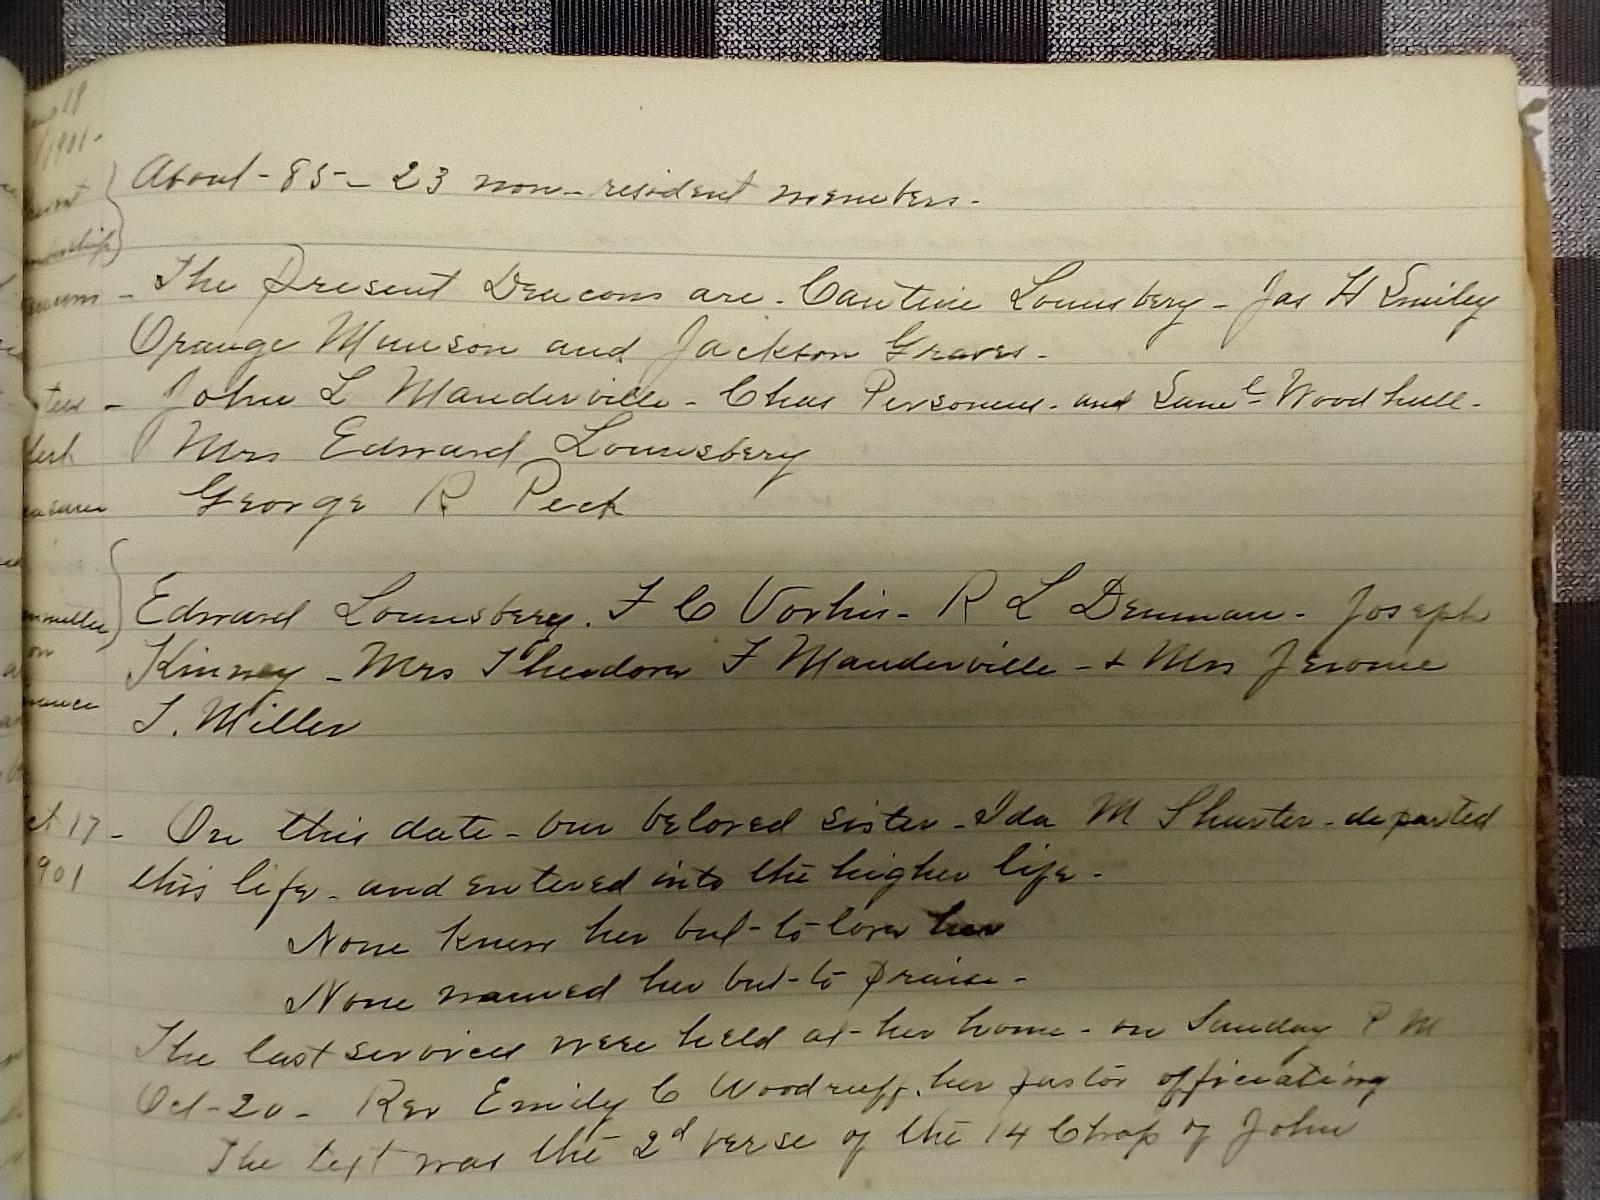 Aug 18
1901-
About - 85 - 23 non-resident members -
The Present Deacons are - Cantine Lounsbery - Jas H Smiley
Orange Munson and Jackson Graves -
John L Manderville - Chas Personeus - and Saml Woodhull -
Mrs Edward Lounsbery
George R Peck
Edward Lounsbery . F C Vorhis - R L Denman - Joseph
Kinney - Mrs Theodore F Manderville - + Mrs Jerome
T. Miller
ct 17 - On this date - our beloved sister - Ida M Shurter - departed
1901 this life - and entered into the higher life -
None knew her but - to love her
None named her but - to praise -
The last services were held at - her home - on Sunday P M
Oct - 20 - Rev Emily C Woodruff . her pastor officiating
The text was the 2d verse of the 14 Chap of John